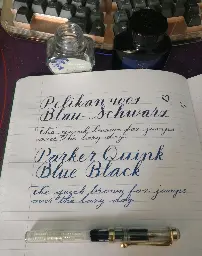 Pelikan 4001
Blau-Schwarz
The quick brown fox jumps
over the lazy dog
Parker Quink
Blue Black
The quick brown fox jumps
over the lazy dog